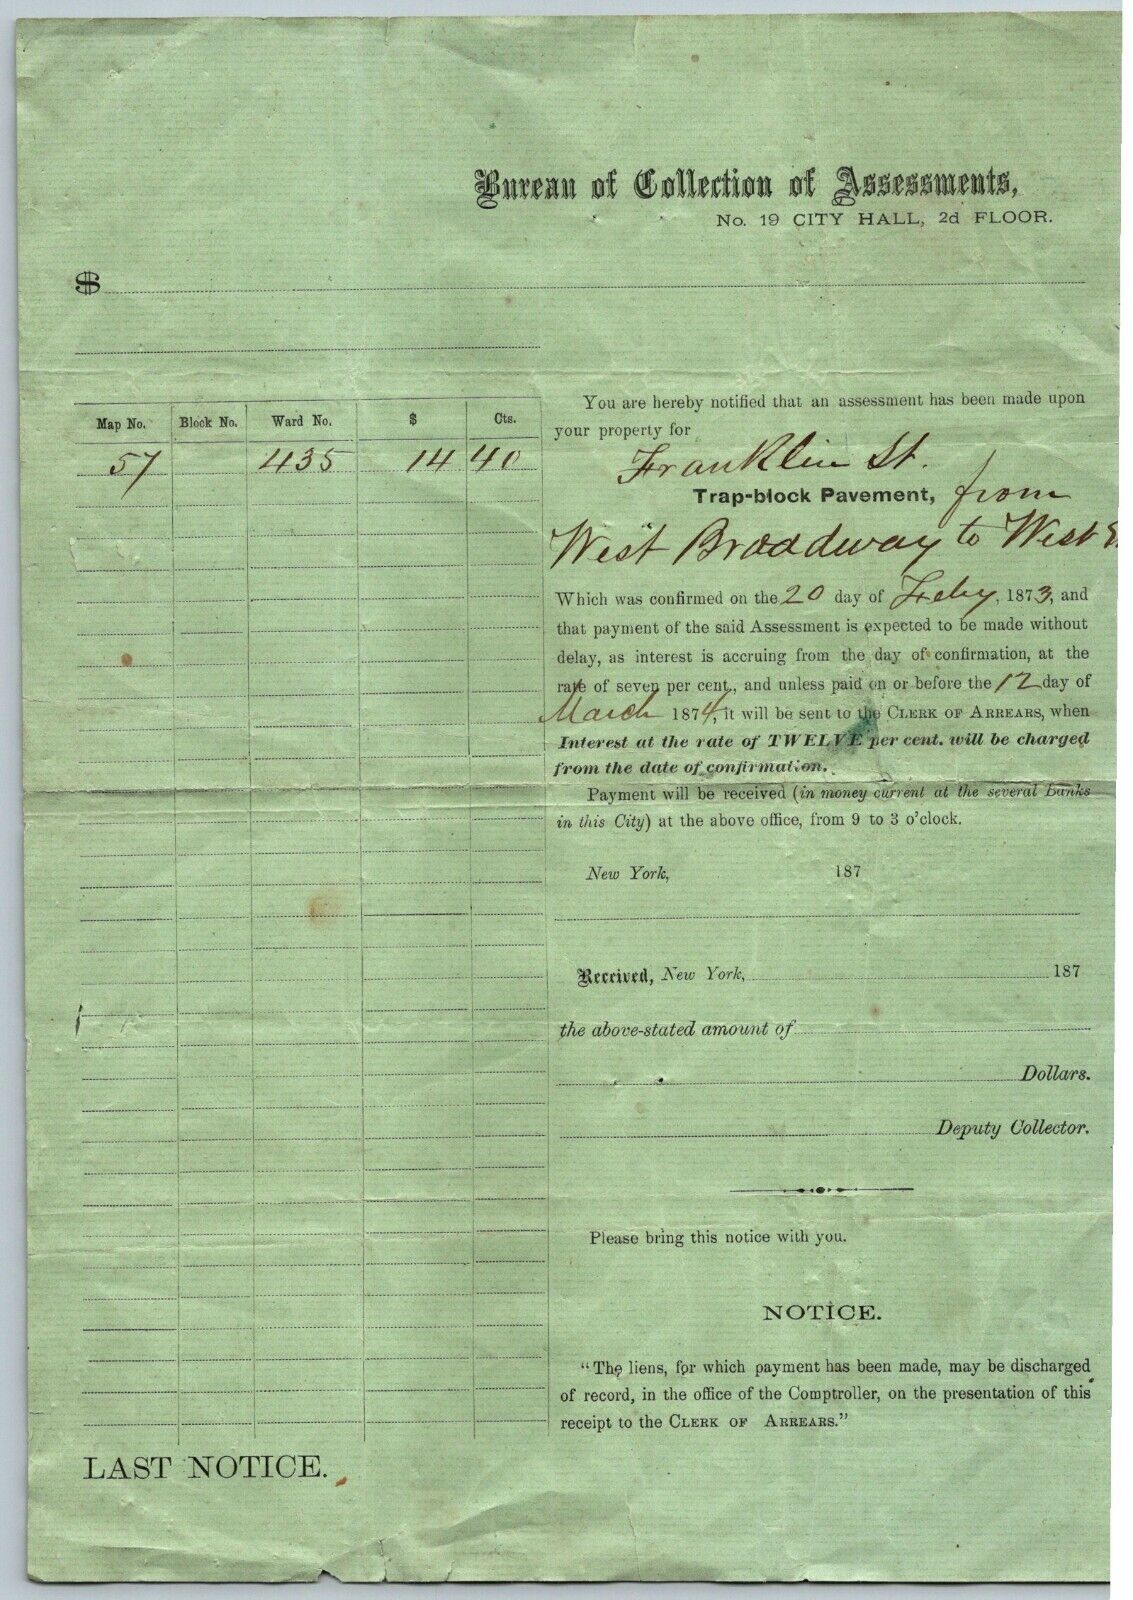 Bureau of Collection of Assessments,
No. 19 CITY HALL, 2d FLOOR.
$
Map No. Block No. Ward No. $ Cts.
57 435 14 40
You are hereby notified that an assessment has been made upon
your property for
Franklin St.
Trap-block Pavement, from
West Broadway to West
Which was confirmed on the 20 day of Feby, 1873, and
that payment of the said Assessment is expected to be made without
delay, as interest is accruing from the day of confirmation, at the
rate of seven per cent., and unless paid on or before the 12 day of
March 1874, it will be sent to the CLERK OF ARREARS, when
Interest at the rate of TWELVE per cent. will be charged
from the date of confirmation.
Payment will be received (in money current at the several Banks
in this City) at the above office, from 9 to 3 o'clock.
New York, 187
Received, New York, 187
the above-stated amount of
Dollars.
Deputy Collector.
Please bring this notice with you.
NOTICE.
"The liens, for which payment has been made, may be discharged
of record, in the office of the Comptroller, on the presentation of this
receipt to the CLERK OF ARREARS."
LAST NOTICE.